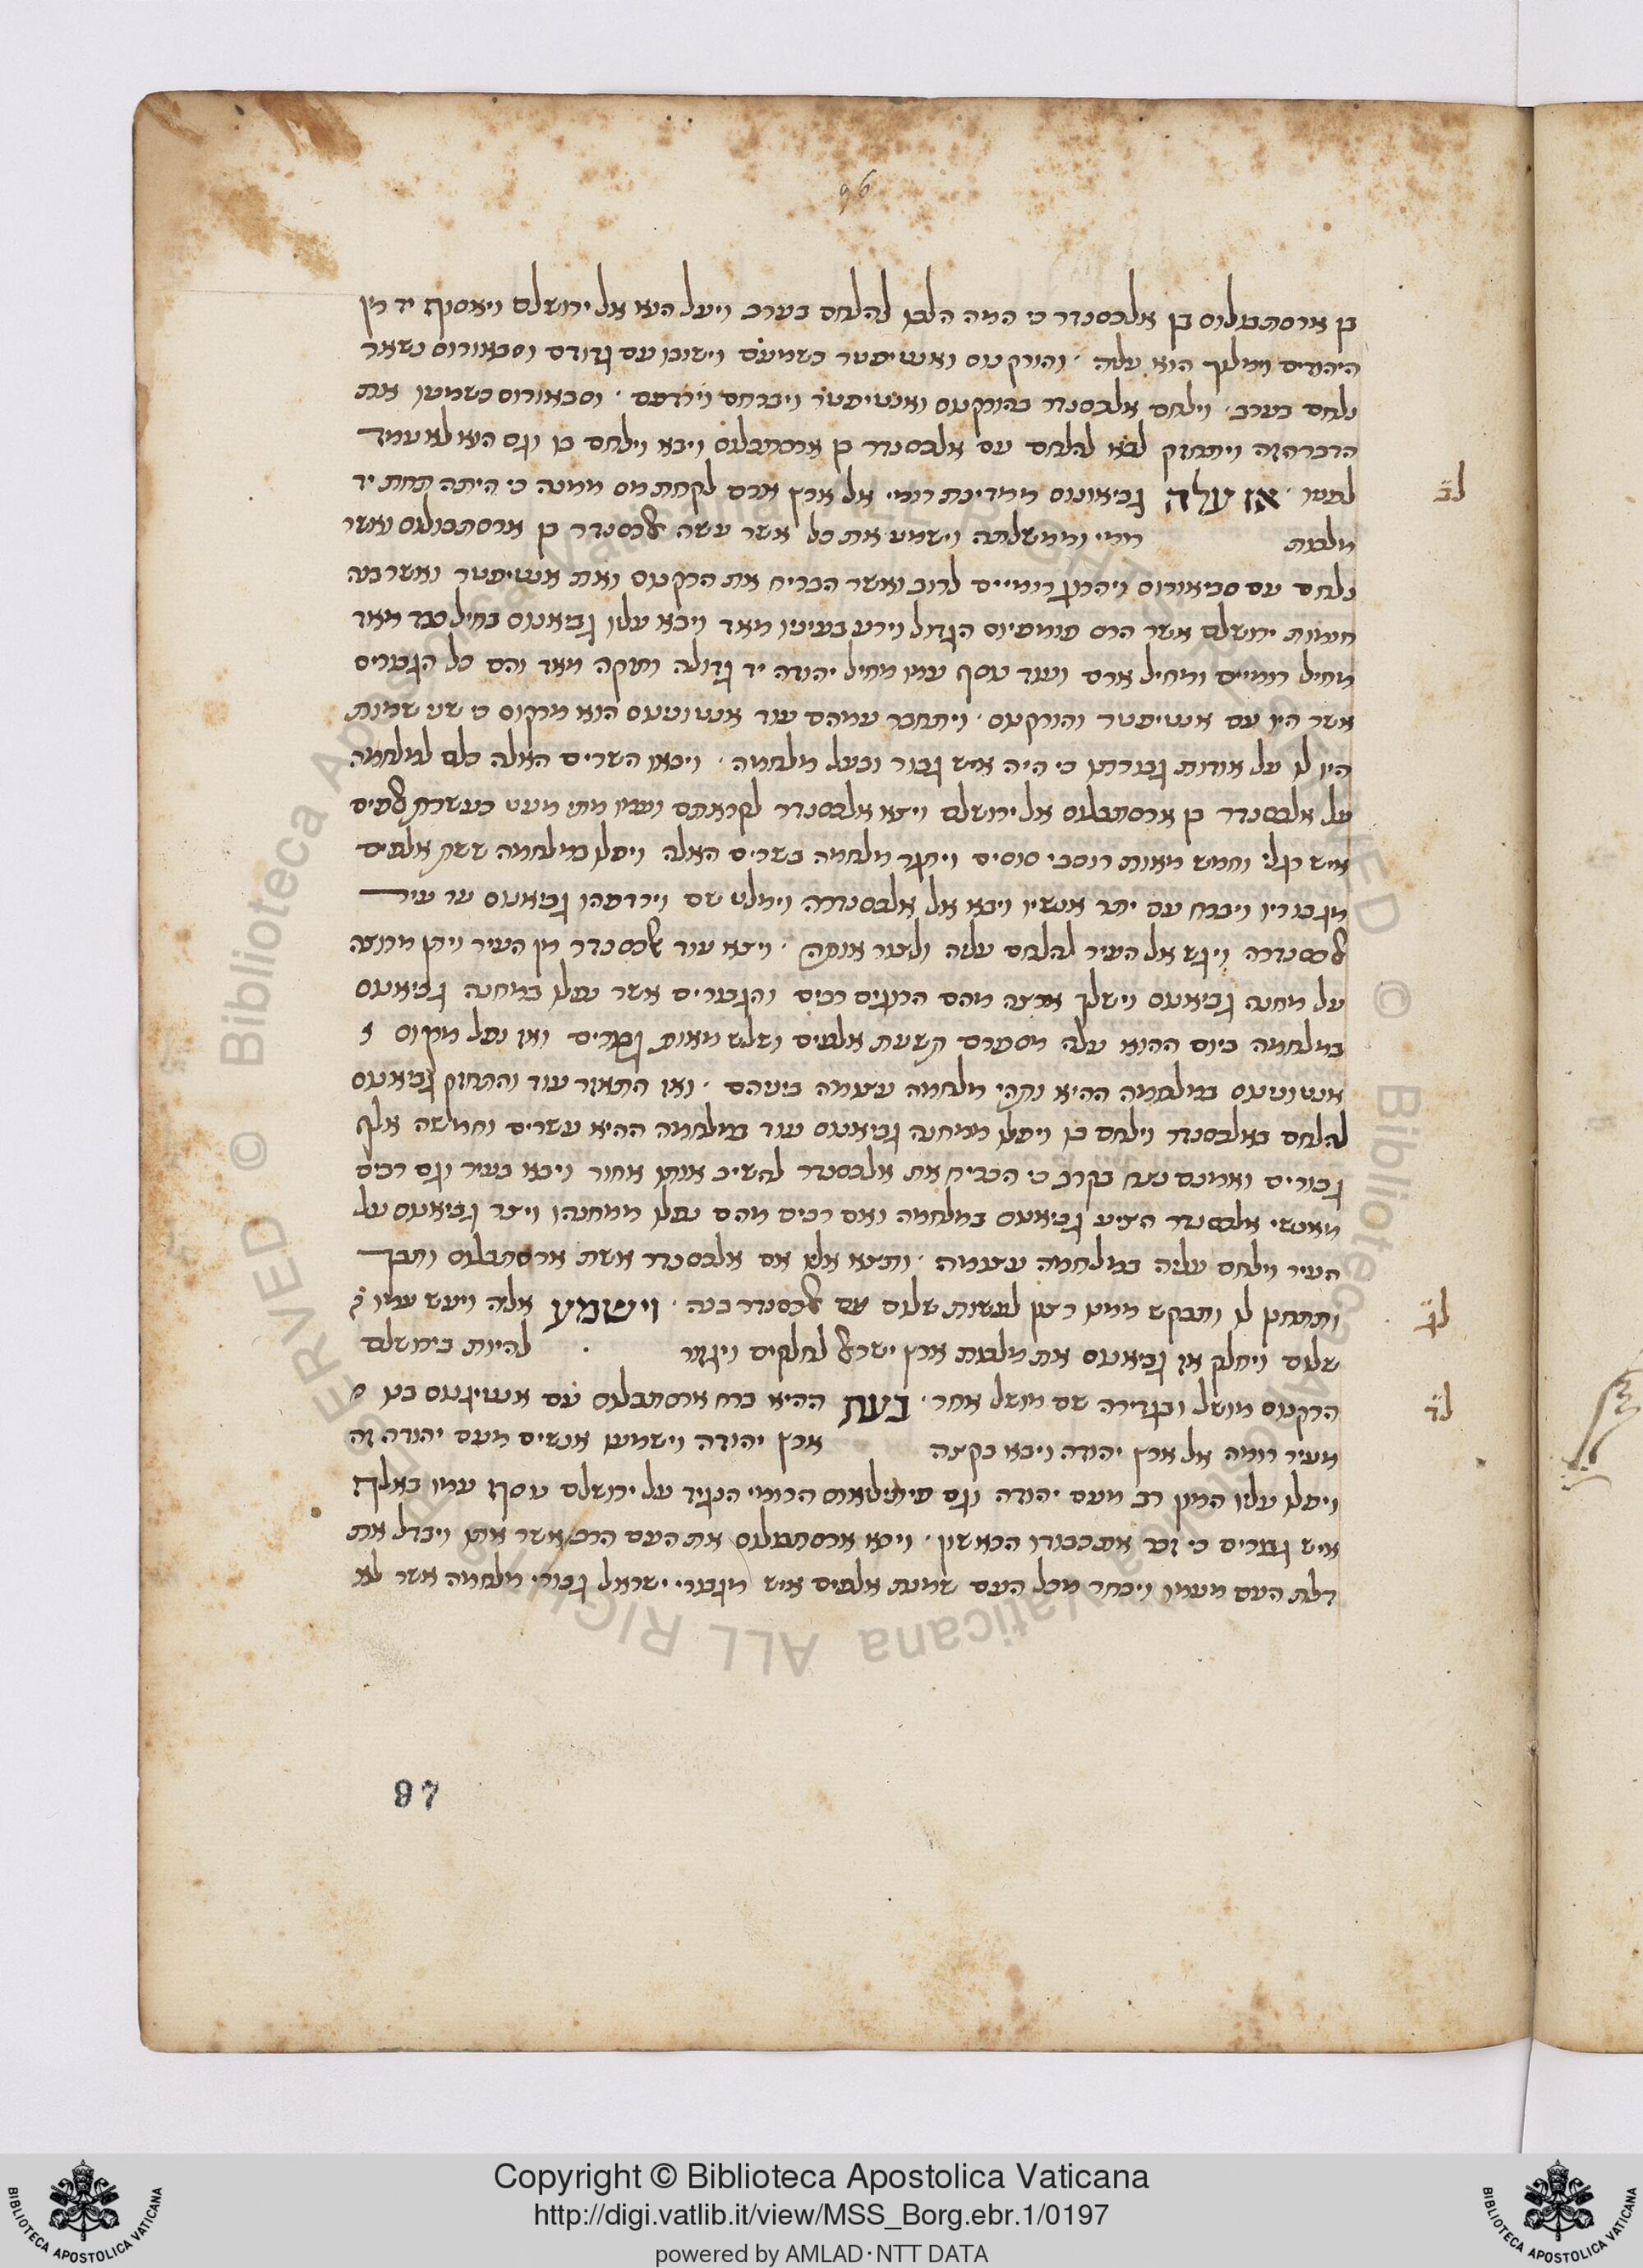 96
בן ארסתבולוס בן אלכסנדר כי המה הלכו להלחם בערב ויעל הוא אל ירושלם ויאסוף יד מן
היהודים וימלוך הוא עליה · והורקנוס ואנטיפטר כשמעם וישובו עם גדודם וסכאורוס נשאר
נלחם בערב · וילחם אלכסנדר בהורקנוס ואנטיפטר ויבריחם וירדפם · וסכאורוס כשמעו את
הדבר הזה ויתחזק לבא להלחם עם אלכסנדר בן ארסתבלוס ויבא וילחם בו וגם הוא לא עמד
לפניו · אז עלה גביאונוס ממדינת רומי אל ארץ ארם לקחת מס ממנה כי היתה תחת יד
מלכות רומי וממשלתה וישמע את כל אשר עשה אלכסנדר בן ארסתבולוס ואשר
נלחם עם סכיאורוס ויהרוג רומיים לרוב ואשר הבריח את הרקנוס ואת אנטיפטר ואשר בנה
חומות ירושלם אשר הרס פומפיוס הגדול וירע בעיניו מאד ויבא עליו גביאנוס בחיל כבד מאד
מחיל רומיים ומחיל ארם ועוד אסף עמו מחיל יהודה יד גדולה וחזקה מאד והם כל הגבורים
אשר היו עם אנטיפטר והורקנוס · ויתחבר עמהם עוד אנטונינוס הוא מרקוס כי שני שמות
היו לו על אודות גבורתו כי היה איש גבור ובעל מלחמה · ויבאו השרים האלה כלם למלחמה
על אלכסנדר בן ארסתבלוס אל ירושלם ויצא אלכסנדר לקראתם ועמו מתי מעט כעשרת אלפים
איש רגלי וחמש מאות רוכבי סוסים ויתגר מלחמה בשרים האלה ויפלו במלחמה ששת אלפים
מגבוריו ויברח עם יתר אנשיו ויבא אל אלכסנדריה וימלט שם וירדפהו גביאנוס עד עיר
אלכסנדריה ויגש אל העיר להלחם עליה ולצור אותה · ויצא עוד אלכסנדר מן העיר ויתן מרוצה
על מחנה גביאנוס וישלך ארצה מהם הרוגים רבים והגבורים אשר נפלו במחנה גביאנוס
במלחמה ביום ההוא עלה מספרם תשעת אלפים ושלש מאות גבורים ואז נפל מרקוס
אנטונינוס במלחמה ההיא ותהי מלחמה עצומה ביניהם · ואז התאזר עוד והתחזק גביאנוס
להלחם באלכסנדר וילחם בו ויפלו ממחנה גביאנוס עוד במלחמה ההיא עשרים וחמשה אלף
גבורים ואמנם נצח בקרב כי הבריח את אלכסנדר להשיב אותו אחור ויבא בעיר וגם רבים
מאנשי אלכסנדר הציע גביאנוס במלחמה ואם רבים מהם נפלו ממחנהו ויצר גביאנוס על
העיר וילחם עליה במלחמה עצומה · ותצא אליו אם אלכסנדר אשת ארסתבלוס ותבך
ותתחנן לו ותבקש ממנו רצון לעשות שלום עם אלכסנדר בנה · וישמע אליה ויעש עמו
שלום ויחלק אז גביאנוס את מלכות ארץ ישראל לחלקים ויגזור להיות בירושלם
הרקנוס מושל ובגדירה שם מושל אחר · בעת ההיא ברח ארסתבלוס עם אנטיגנוס בנו
מעיר רומה אל ארץ יהודה ויבא בקצה ארץ יהודה וישמעו אנשים מעם יהודה זה
ויפלו עליו המון רב מעם יהודה וגם פיתילאוס הרומי הנגיד על ירושלם אסף עמו כאלף
איש גבורים כי זכר את כבודו הראשון · וירא ארסתבולוס את העם הרב אשר אתו ויבדל את
דלת העם מעמו ויבחר מכל העם שמנת אלפים איש מגבורי ישראל גבורי מלחמה אשר לא
לב
לג
לד
97
© Biblioteca Apostolica Vaticana ALL RIGHTS RESERVED
Copyright © Biblioteca Apostolica Vaticana
http://digi.vatlib.it/view/MSS_Borg.ebr.1/0197
powered by AMLAD·NTT DATA
BIBLIOTECA APOSTOLICA VATICANA
BIBLIOTECA APOSTOLICA VATICANA